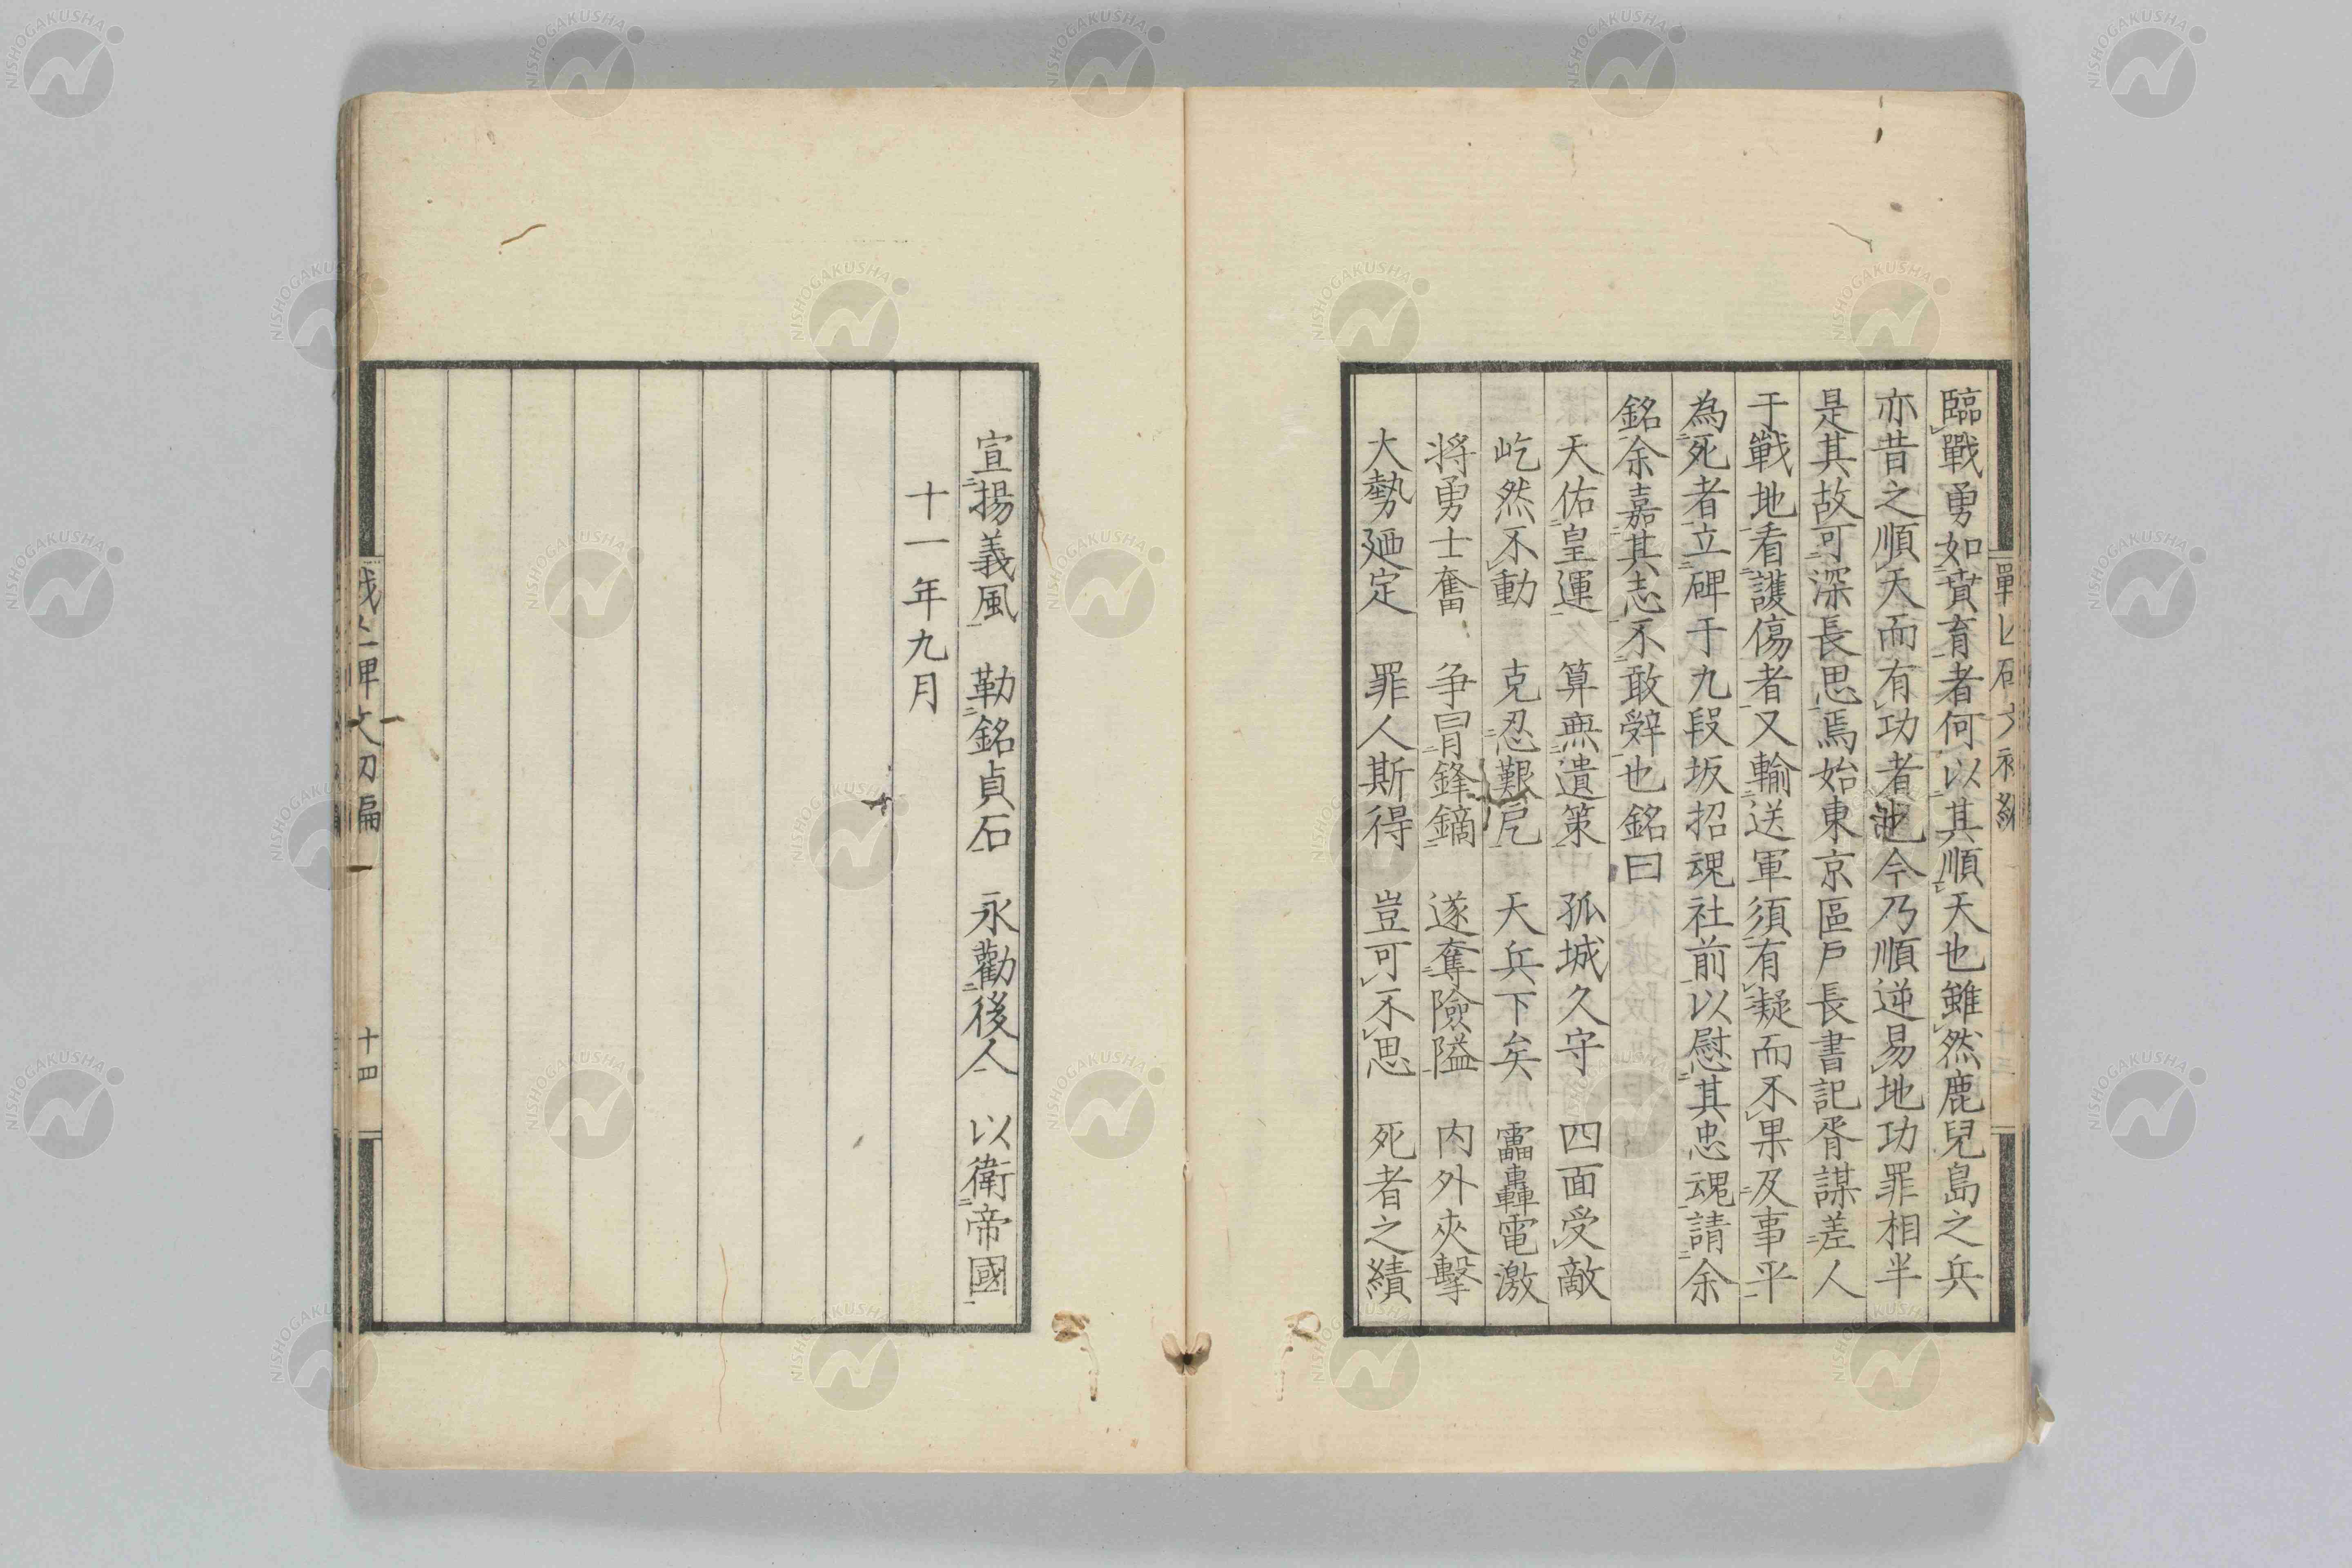 臨戰勇如賁育者何以其順天也雖然鹿兒島之兵
亦昔之順天而有功者也今乃順逆易地功罪相半
是其故可深長思焉始東京區戶長書記胥謀差人
于戰地看護傷者又輸送軍須有疑而不果及事平
為死者立碑于九段坂招魂社前以慰其忠魂請余
銘余嘉其志不敢辤也銘曰
天佑皇運　算無遺策　孤城久守　四面受敵
屹然不動　克忍艱戹　天兵下矣　靁轟電激
將勇士奮　争冒鋒鏑　遂奪險隘　内外夾擊
大勢廼定　罪人斯得　豈可不思　死者之績
宣揚義風　勒銘貞石　永勸後人　以衛帝國
十一年九月
碑文初編一
十四
NISHOGAKUSHA